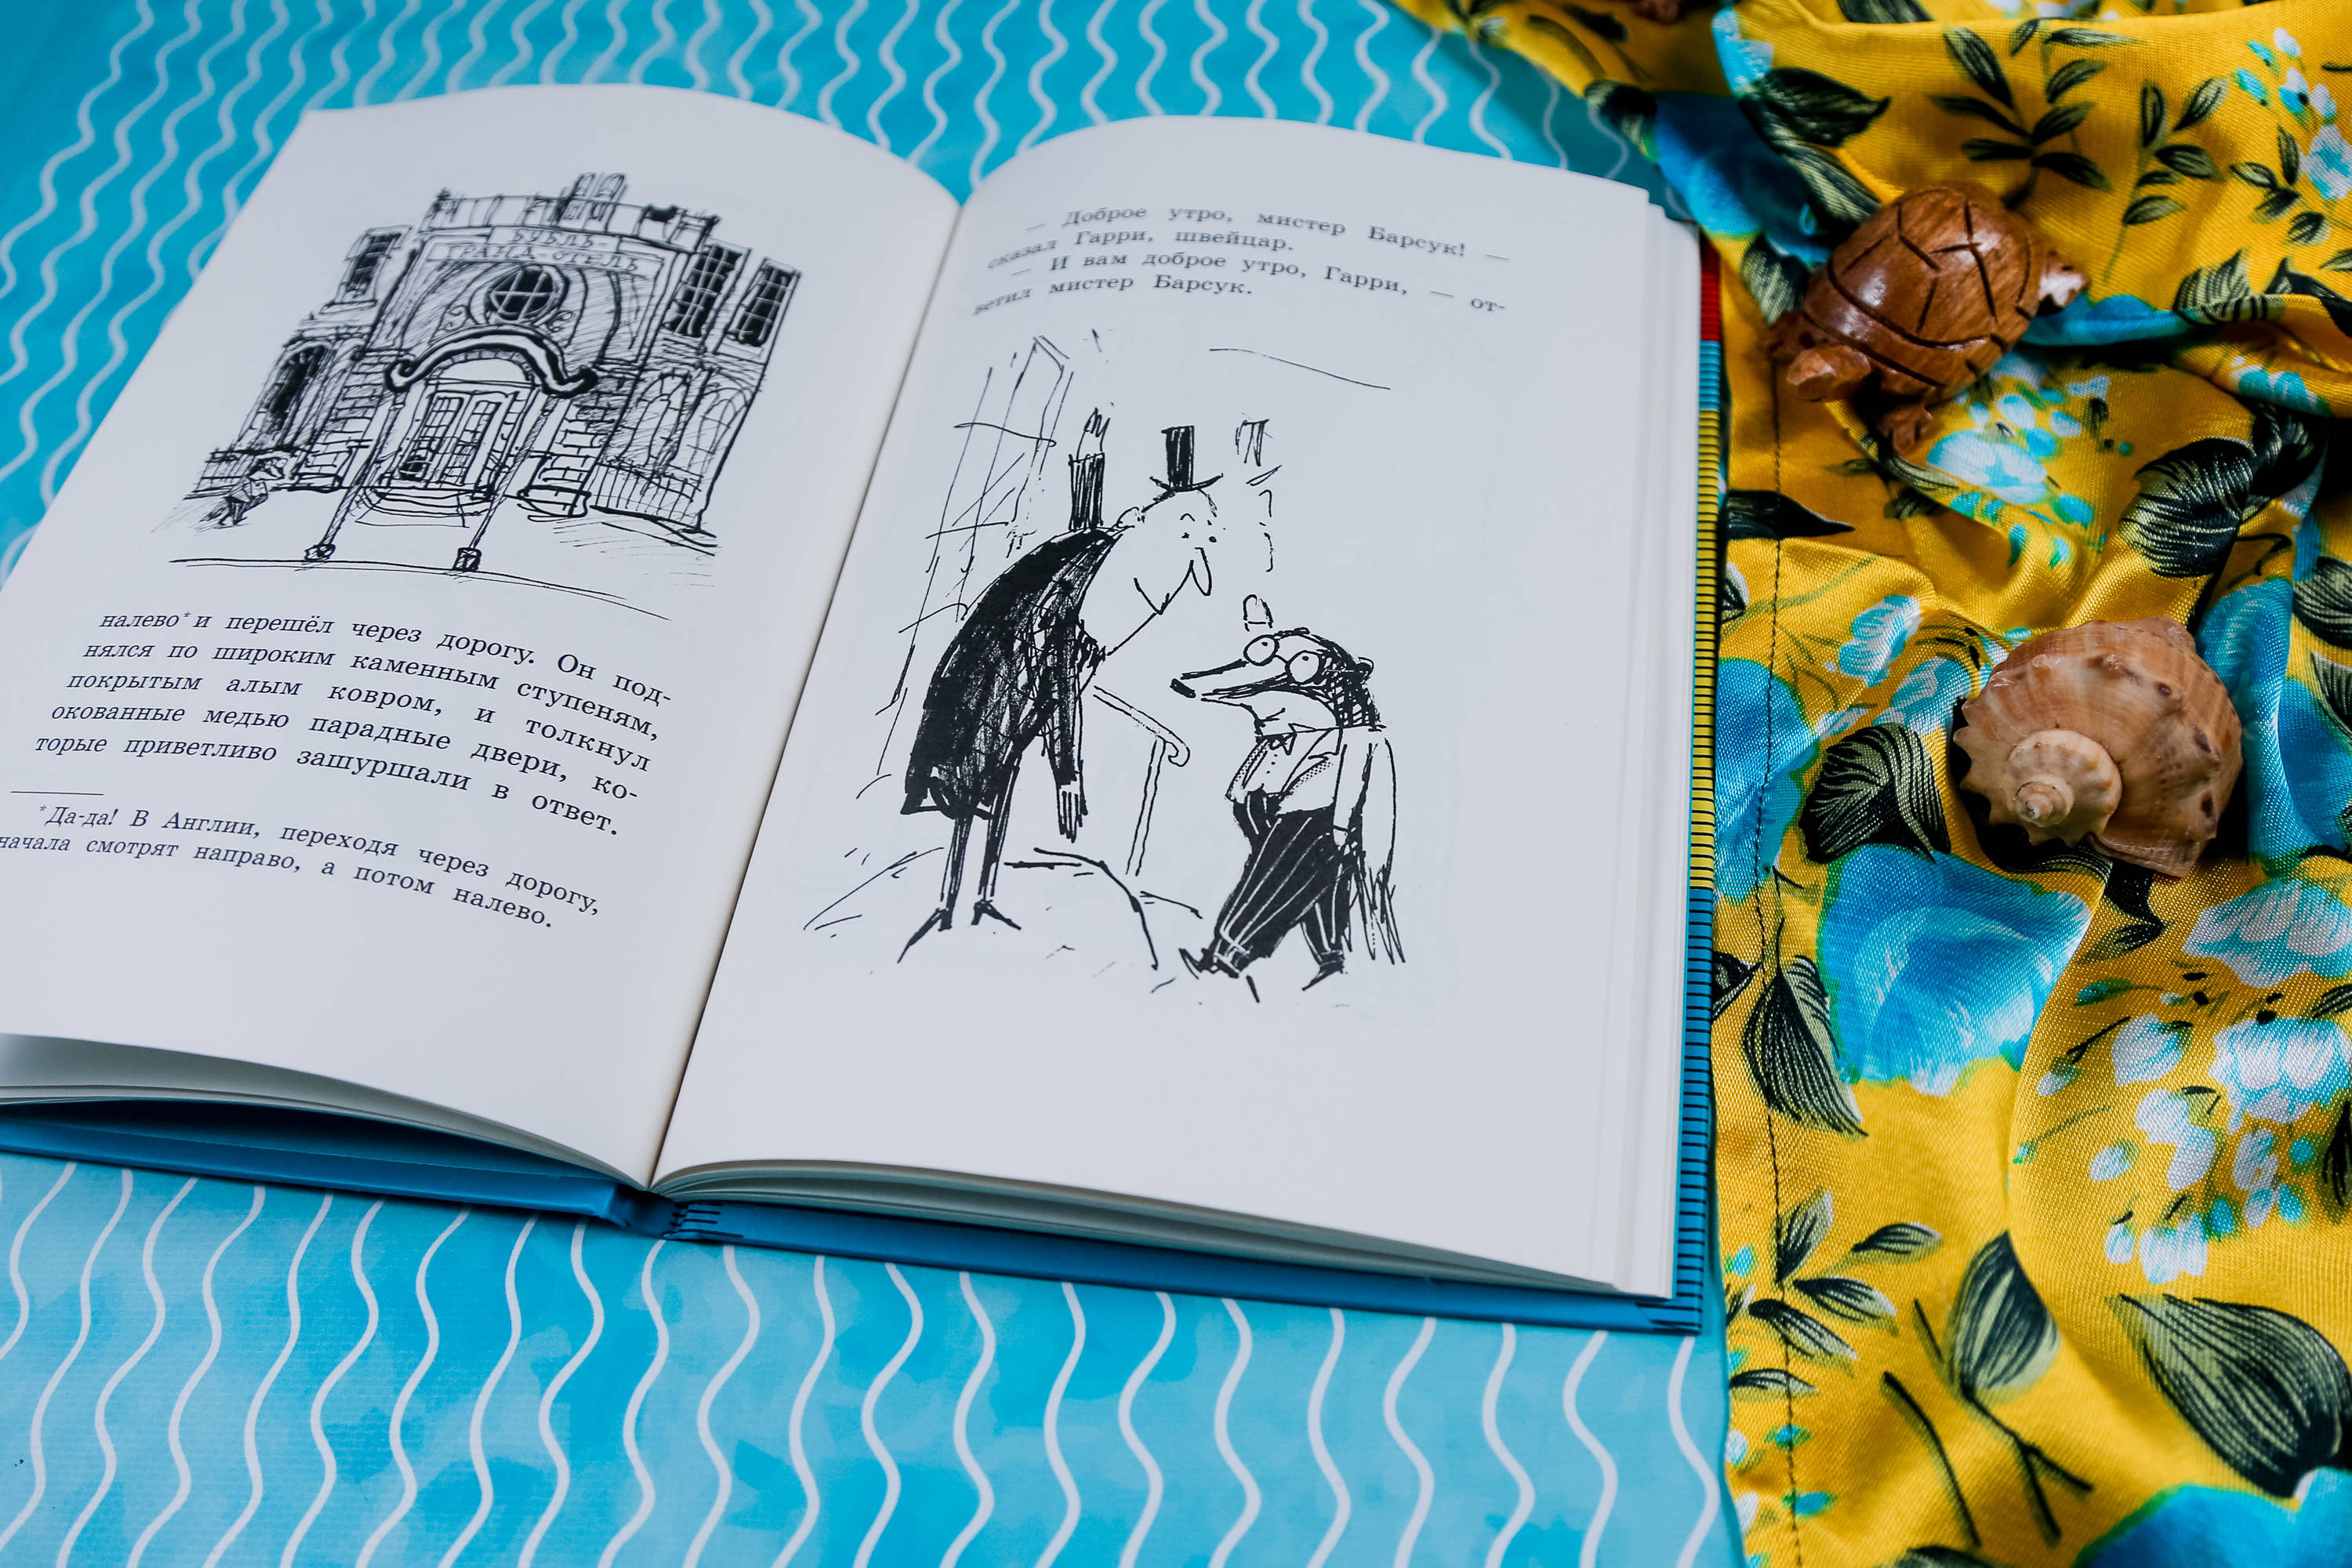 БУБЛЬ-
ГРАНД-ОТЕЛЬ
налево* и перешёл через дорогу. Он под-
нялся по широким каменным ступеням,
покрытым алым ковром, и толкнул
окованные медью парадные двери, ко-
торые приветливо зашуршали в ответ.
* Да-да! В Англии, переходя через дорогу,
начала смотрят направо, а потом налево.
— Доброе утро, мистер Барсук! —
сказал Гарри, швейцар.
— И вам доброе утро, Гарри, — от-
ветил мистер Барсук.